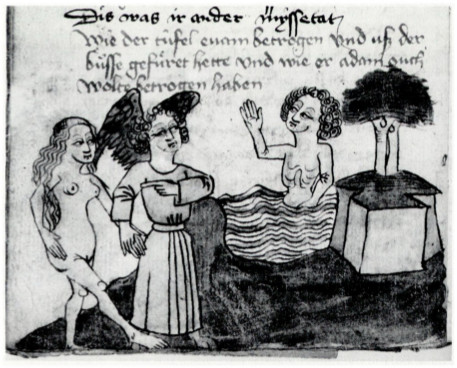 Dis was ir ander Myssetat
Wie der tüfel euam betrogen Vnd vß der
büsse gefüret hette Vnd wie er adam ouch
wolte betrogen haben